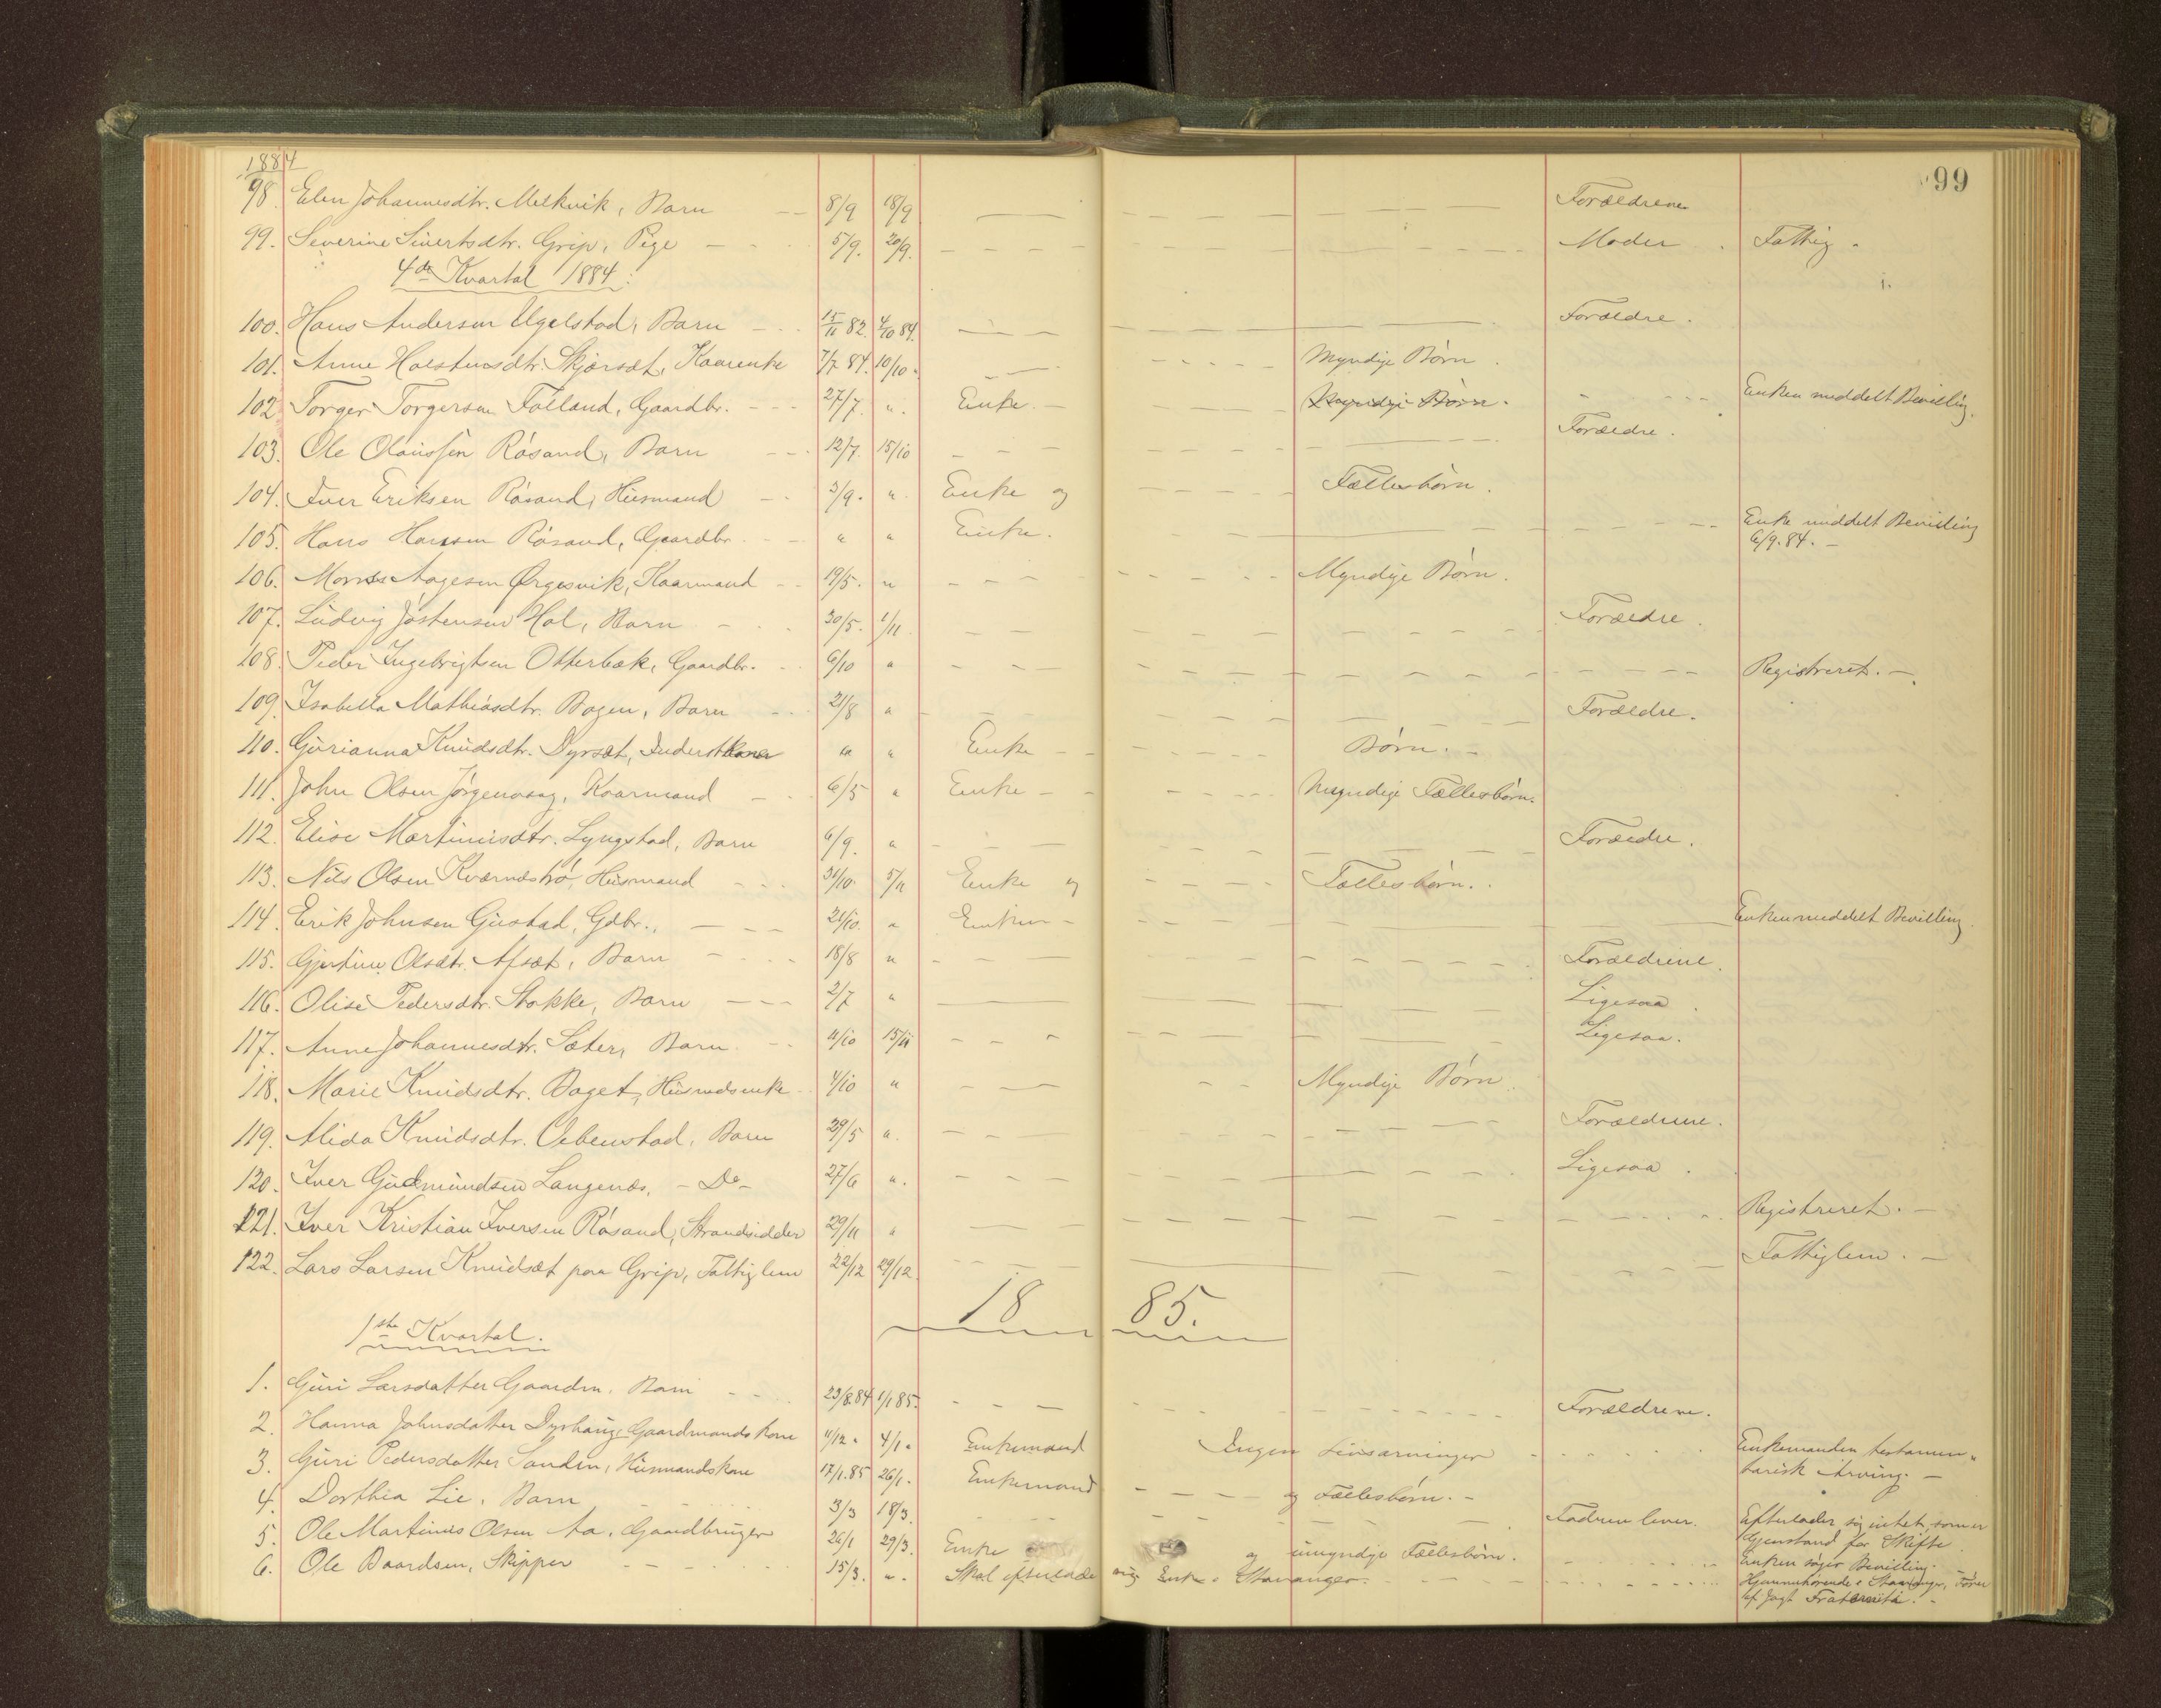 1884
99
98. Elen Johannesdtr. Melkvik, Barn 8/9 18/9 Forældrene
99. Severine Sivertsdtr. Grip, Pige 5/9. 20/9. Moder Fattig.
4de Kvartal 1884.
100. Hans Andersen Ugelstad, Barn 15/11 82. 4/10 84. Forældre.
101. Anne Halstensdtr. Skjørsæt, Kaarenke 7/7 84. 10/10 Myndige Børn.
102 Torger Torgersen Falland, Gaardbr. 27/7. " Enke. Myndige Børn. Enken meddelt Bevilling.
103. Ole Olaussen Røsand, Barn 12/7. 15/10 Forældre.
104. Iver Eriksen Røsand, Husmand 3/9. " Enke og Fællesbørn.
105. Hans Hansen Røsand, Gaardbr. " " Enke. Enke meddelt Bevilling
6/9.84.
106. Aagesen Ørgesvik, Kaarmand 19/5. " Myndige Børn.
107. Ludvig Jøstensen Hol, Barn 30/5. 1/11 Forældre.
108. Peder Ingebrigtsen Otterbæk, Gaardbr. 6/10 " Registreret.
109. Isabella Mathiasdtr. Bogen, Barn 21/8 " Forældre.
110. Gurianna Knudsdtr. Dyrsæt, " " Enke Børn.
111. John Olsen Jørgenvaag, Kaarmand 6/5 " Enke Myndige Fællesbørn.
112. Elise Martinusdtr. Lyngstad, Barn 6/9. " Forældre.
113. Nils Olsen Kværnæstrø, Husmand 31/10. 5/11 Enke og Fællesbørn.
114. Erik Johnsen Gustad, Gdbr. 21/10. " Enken Enken meddelt Bevilling
115. Gjertine Olsdtr. Afsæt, Barn 18/8 " Forældrene.
116. Olise Pedersdtr. Stokke, Barn 2/7 " Ligesaa
117. Anne Johannesdtr. Sæter, Barn 11/10 15/11 Ligesaa.
118. Marie Knudsdtr. Baget, Husmdsenke 4/10 " Myndige Børn.
119. Alida Knudsdtr. Ulvenstad, Barn 29/5 " Forældrene.
120. Iver Gudmundsen Langenæs, - Do - 27/6 " Ligesaa.
121. Iver Kristian Iversen Røsand, Strandsidder 29/11 " Registreret.
122. Lars Larsen Knudsæt paa Grip, Fattiglem 22/12 29/12. Fattiglem.
1885.
1ste Kvartal.
1. Guri Larsdatter Gaarden, Barn 23/8.84 1/1 85. Forældrene.
2. Hanna Johnsdatter Dyrhaug Gaardmandskone 11/12 " 4/1 " Enkemand Ingen Livsarvinger Enkemanden testamen-
tarisk Arving.
3. Guri Pedersdatter Sanden, Husmandskone 17/1.85 26/1. Enkemand og Fællesbørn.
4. Dorthia Lie, Barn 3/3 18/3. Faderen lever. Efterlader sig intet, som er
Gjenstand for Skifte.
5. Ole Martinus Olsen Aa, Gaardbruger 26/1 29/3. Enke og umyndige Fællesbørn. Enken søger Bevilling.
6. Ole Baardsen, Skipper 15/3. " Skal efterlade sig Enke i Stavanger. Hjemmehørende i Stavanger, Fører
af Jagt Fraternité.